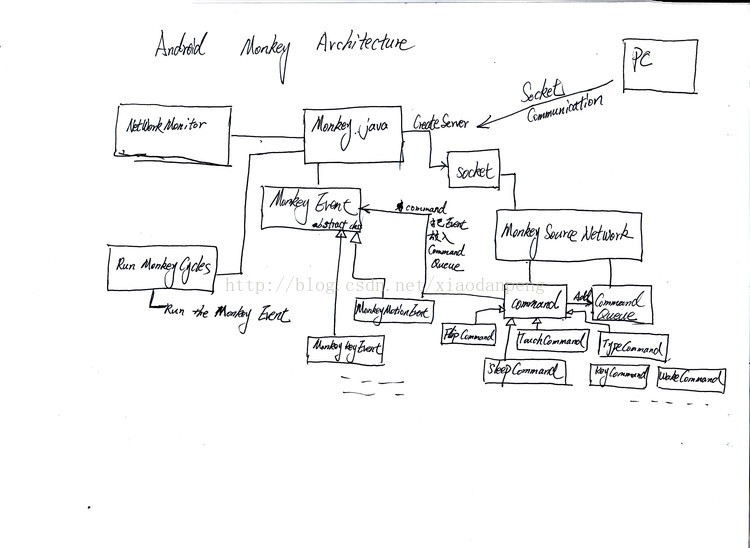 Android Monkey Architecture
PC
Socket
Communication
NetWork Monitor
Monkey.java
CreateServer
socket
Monkey Event
abstract class
command
把Event
放入
Command
Queue
Monkey Source Network
Run MonkeyCycles
Run the Monkey Event
http://blog.csdn.net/xiaodanpeng
MonkeyMotionEvent
command
Add
Command
Queue
FlipCommand
TouchCommand
TypeCommand
MonkeyKeyEvent
SleepCommand
KeyCommand
WakeCommand